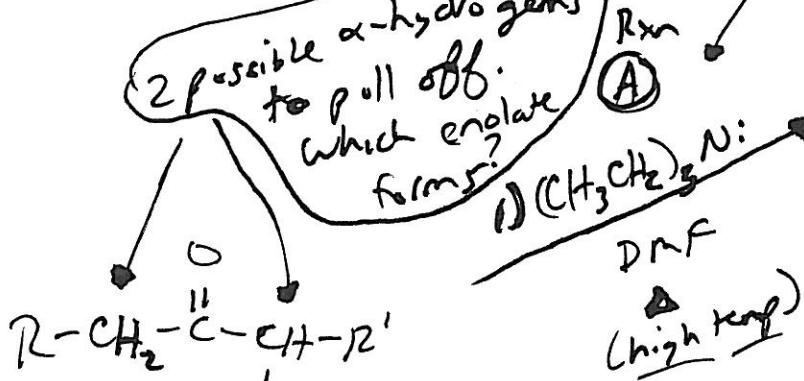 2 possible α-hydrogens
to pull off.
which enolate
forms?
Rxn
A
1) (CH3CH2)3N:
DMF
Δ
(high temp)
O
||
R-CH2-C-CH-R'